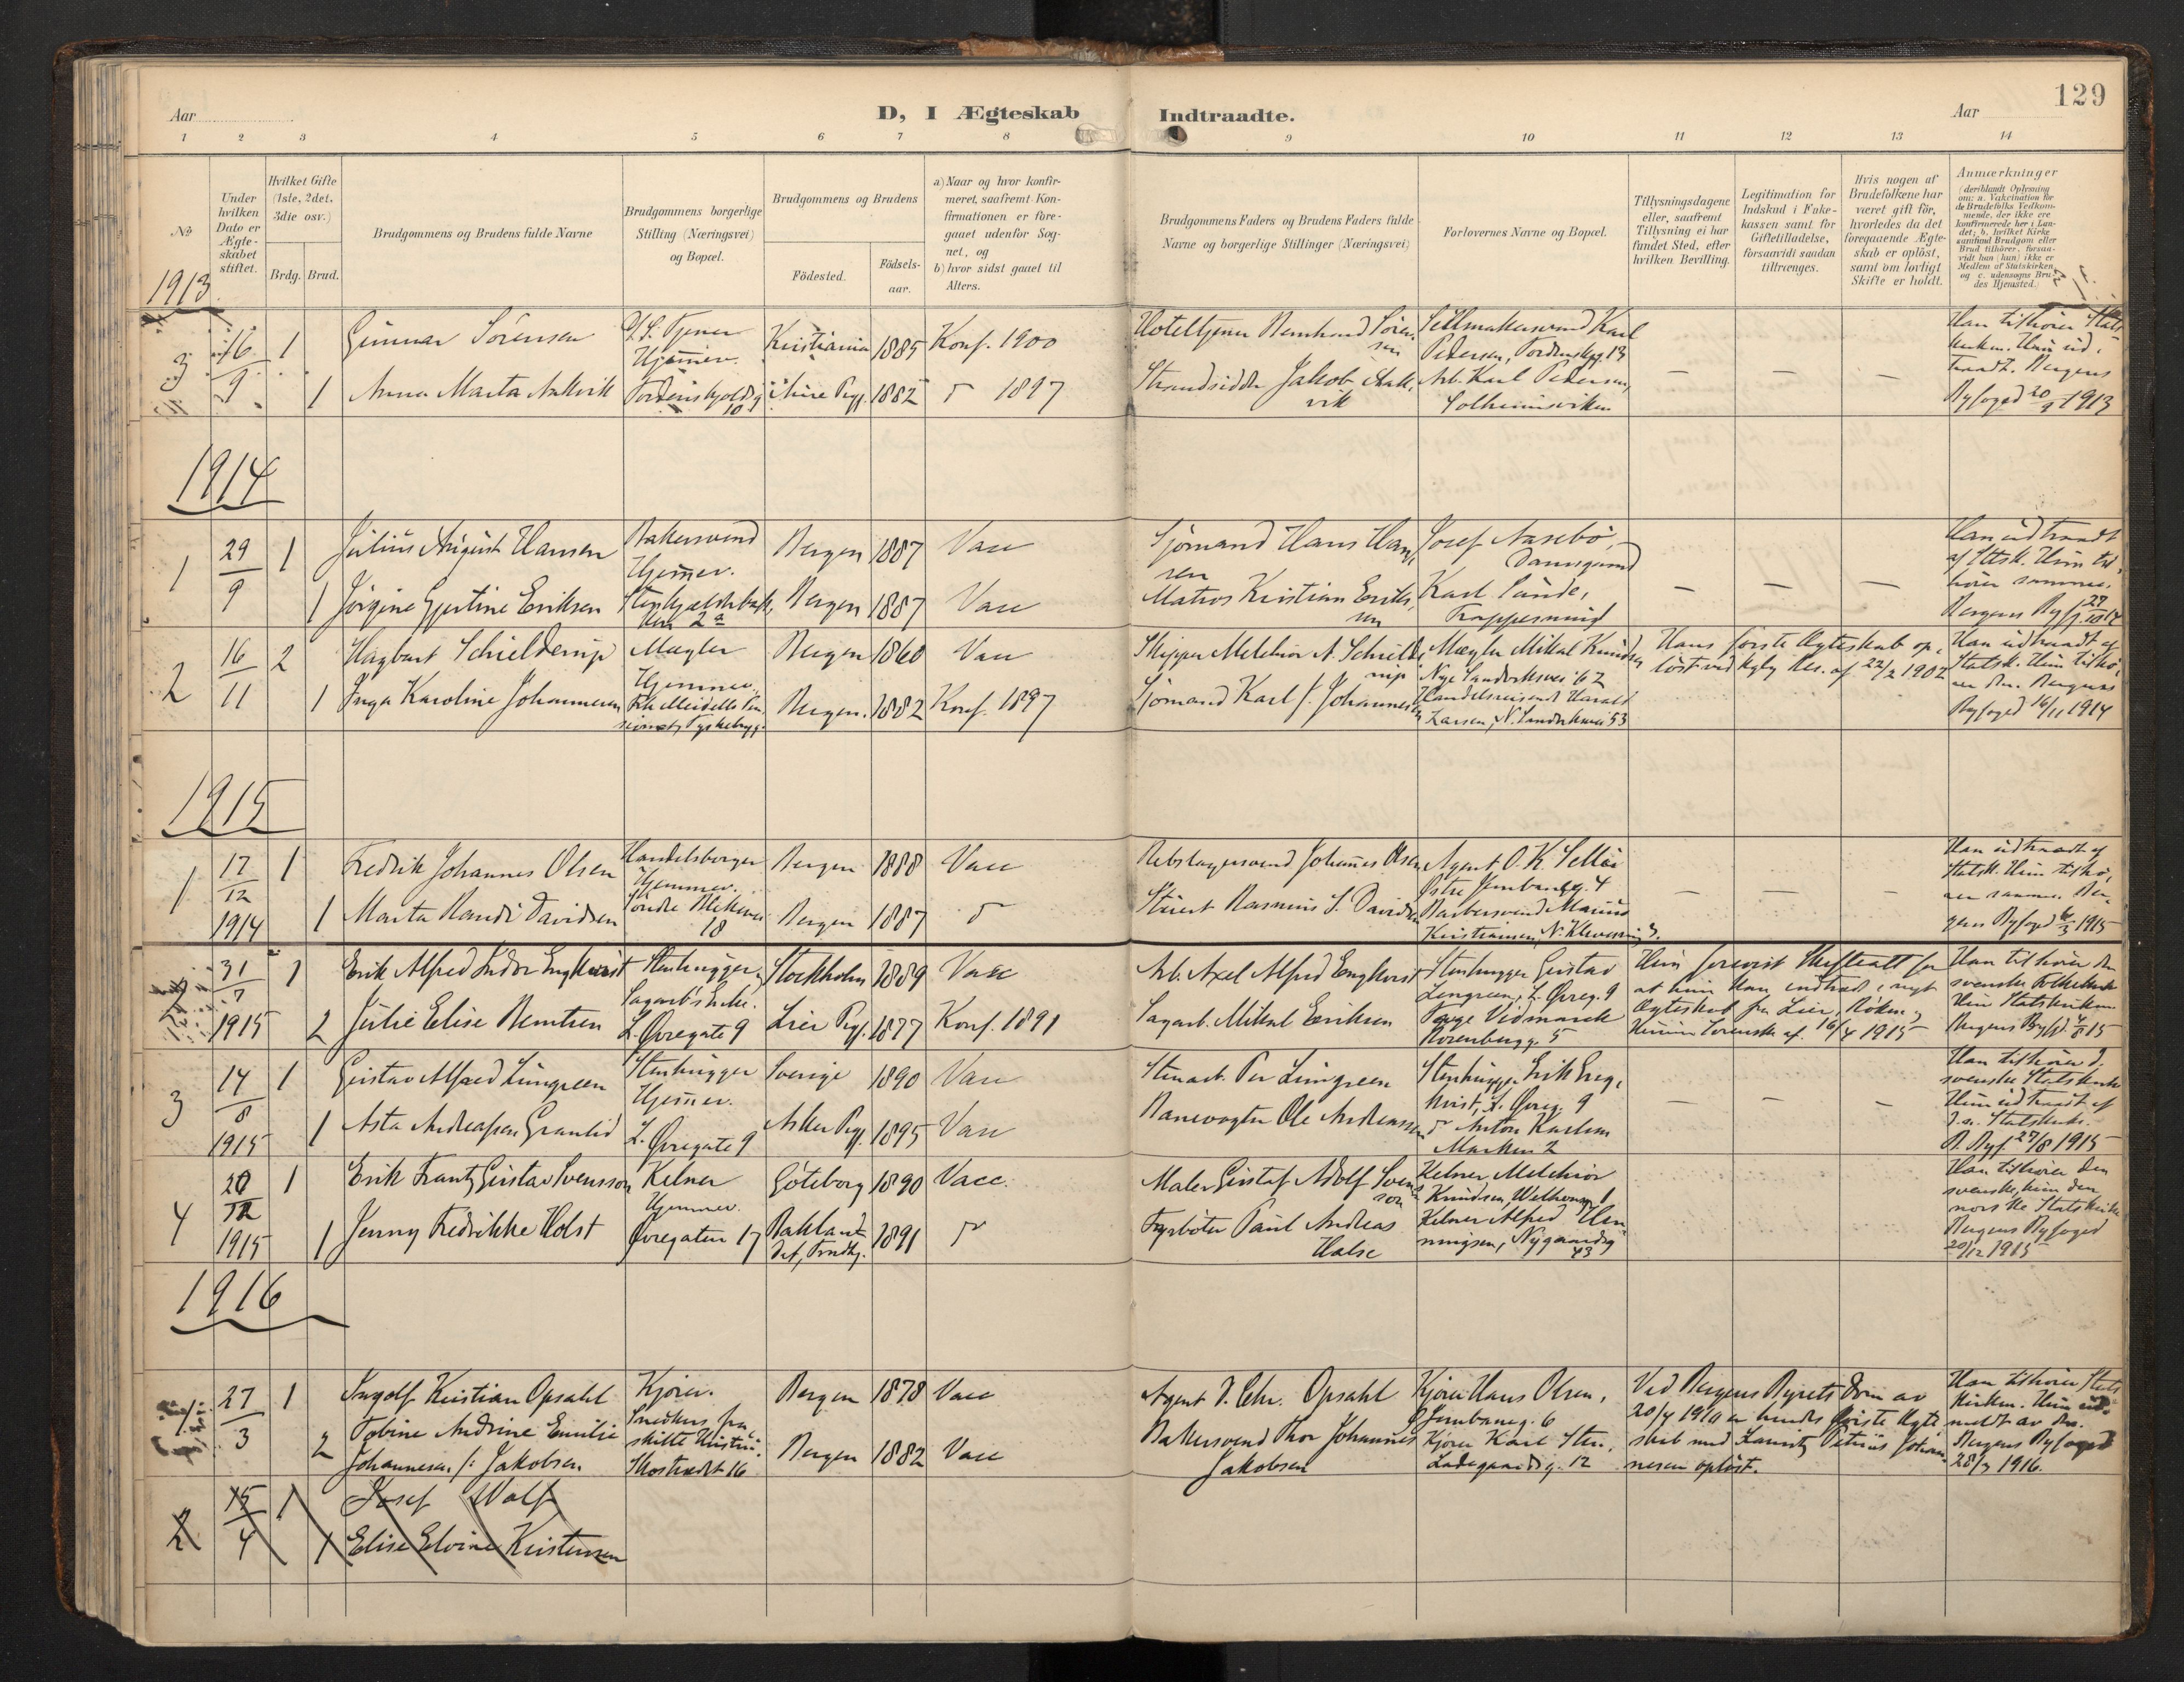 129
Aar
D, I Ægteskab
Indtraadte.
Aar
1 2 3 4 5 6 7 8 9 10 11 12 13 14
No
Under
hvilken
Dato er
Ægte-
skabet
stiftet.
Hvilket Gifte
(1ste, 2det,
3die osv.)
Brdg. Brud.
Brudgommens og Brudens fulde Navne
Brudgommens borgerlige
Stilling (Næringsvei)
og Bopæl.
Brudgommens og Brudens
Födested.
Födsels-
aar.
a) Naar og hvor konfir-
meret, saafremt Kon-
firmationen er fore-
gaaet udenfor Sog-
net, og
b) hvor sidst gaaet til
Alters.
Brudgommens Faders og Brudens Faders fulde
Navne og borgerlige Stillinger (Næringsvei)
Forlovernes Navne og Bopæl.
Tillysningsdagene
eller, saafremt
Tillysning ei har
fundet Sted, efter
hvilken Bevilling.
Legitimation for
Indskud i Enke-
kassen samt for
Giftetilladelse,
forsaavidt saadan
tiltrænges.
Hvis nogen af
Brudefolkene har
været gift för,
hvorledes da det
foregaaende Ægte-
skab er oplöst,
samt om lovligt
Skifte er holdt.
Anmærkninger
(deriblandt Oplysning
om: a. Vakcination for
de Brudefolks Vedkom-
mende, der ikke ere
konfirmerede her i Lan-
det; b. hvilket Kirke-
samfund Brudgom eller
Brud tilhörer, forsaa-
vidt han (hun) ikke er
Medlem af Statskirken,
og c. udensogns Bru-
des Hjemsted.)
1913
3 16/9 1 Gunnar Sörensen
Tjener
Hjemmev.
Kristiania 1885 Konf. 1900
Hoteltjener Bernhard Sören-
sen
Seilmakersvend Karl
Pedersen, Tordenskjg. 13
Han tilhörer Stats
kirken. Hun ud-
traadt. Bergens
Byfoged 20/9 1913
1 Anna Marta Aakvik
Tordenskjoldsg
10
Aure Pgj. 1882 1897
Strandsidder Jakob Aak-
vik
Arb. Karl Pedersen,
Solheimsviken
1914
1 29/9 1 Julius August Hansen
Bakersvend
Hjemmev.
Bergen 1887 Vacc
Sjömand Hans Han-
sen
Josef Aasebö,
Damsgaard
Han udtraadt
af Sttsk. Hun til-
hörer samme.
1 Jörgine Gjertine Eriksen
2a
Bergen 1887 Vacc
Matros Kristian Erik-
sen
Karl Sunde,
Trappesmug
2 16/11 2 Hagbart Schielderup
Mægler
Hjemmev.
Bergen 1860 Vacc
Skipper Melchior A. Schield-
rup
Mægler Mikal Knudsen
Nye Sandviksvei 62
Hans förste Ægteskab op-
löst ved kgl. Res. af 22/2 1902
Han udtraadt af
Statsk. Hun tilhö-
rer den. Bergens
Byfoged 16/11 1914
1 Inga Karoline Johannesen
Bergen. 1882 Konf. 1897
Sjömand Karl J. Johannesen
Handelsreisende Harald
Larsen, N. Sandviksvei 53
1915
1 17/12 1914 1 Fredrik Johannes Olsen
Handelsborger
Hjemmev.
Bergen 1888 Vacc
Rebslagersvend Johannes Olsen
Agent O. K.
Östre 4
Han udtraadt af
Statsk. Hun tilhö-
rer samme. Ber-
gens Byfoged 1915
1 Marta Randi Davidsen
Söndre Blekevei
18
Bergen 1887
Stuert Rasmus S. Davidsen
Barbersvend Marius
Kristiansen, N.
2 31/7 1915 1 Erik Alfred Engkvist
Stenhugger,
Sagarb's Enke.
Stockholm 1889 Vacc
Arb. Axel Alfred Engkvist
Stenhugger Gustav
Lungreen, L. Övreg. 9
Hun forevist Skifteatt for
at hun kan indtræde i nyt
Ægteskab fra Lier, Röken
16/4 1915
Han tilhörer den
svenske
Hun Statskirken.
2 Julie Elise Berntsen
L. Övregate 9
Lier Pgj. 1877 Konf. 1891
Sagarb. Mikal Eriksen
Tage Vidmarck
Rosenbergg. 5
3 14/8 1915 1 Gustav Alfred Lungreen
Stenhugger
Hjemmev.
Sverige 1890 Vacc
Stenarb. Per Lungreen
Stenhugger Erik Eng-
kvist, L. Övreg. 9
Han tilhörer d.
svenske Statskirke
Hun udtraadt af
d. n. Statskirke.
B. Byf 27/8 1915
1 Asta Andreassen Granlid
L. Övregate 9
Asker Pgj. 1895 Vacc
Banevogter Ole Andreassen
Anton Karlsen
Marken 2
4 20/12 1915 1 Erik Frantz Gustav Svensson
Kelner
Hjemmev.
Göteborg 1890 Vacc.
Maler Gustaf Adolf Svens-
son
Kelner Melchior
Knudsen, 1
Han tilhörer den
svenske, hun den
norske Statskirke
Bergens Byfoged
20/12 1915
1 Jenny Fredrikke Holst
Övregaten 17
Baklandet, Trndhj.
1891
Fyrböter Paul Andreas
Halse
Kelner Alfred Han-
ningsen, Nygaardsg
43
1916
1 27/3 1 Ingolf Kristian Opsahl
Kjörer.
Bergen 1878 Vacc
Agent D. Chr. Opsahl
Kjörer Hans Olsen,
6
Ved Bergens Byrets Dom av
20/4 1910 er hendes förste Ægte-
skab med Petrus Johan-
nesen oplöst.
Han tilhörer Stats
kirken. Hun ud-
meldt av den.
Bergens Byfoged
28/3 1916.
2 Tobine Andrine Emilie
Johannesen f: Jakobsen
Snedkers fra-
skilte Hustru
Skostrædet 16
Bergen 1882 Vacc
Bakersvend Thor Johannes
Jakobsen
Kjörer Karl
Ladegaardsg. 12
2 15/4 1 Josef Wolf
1 Elise Elvine Kristensen